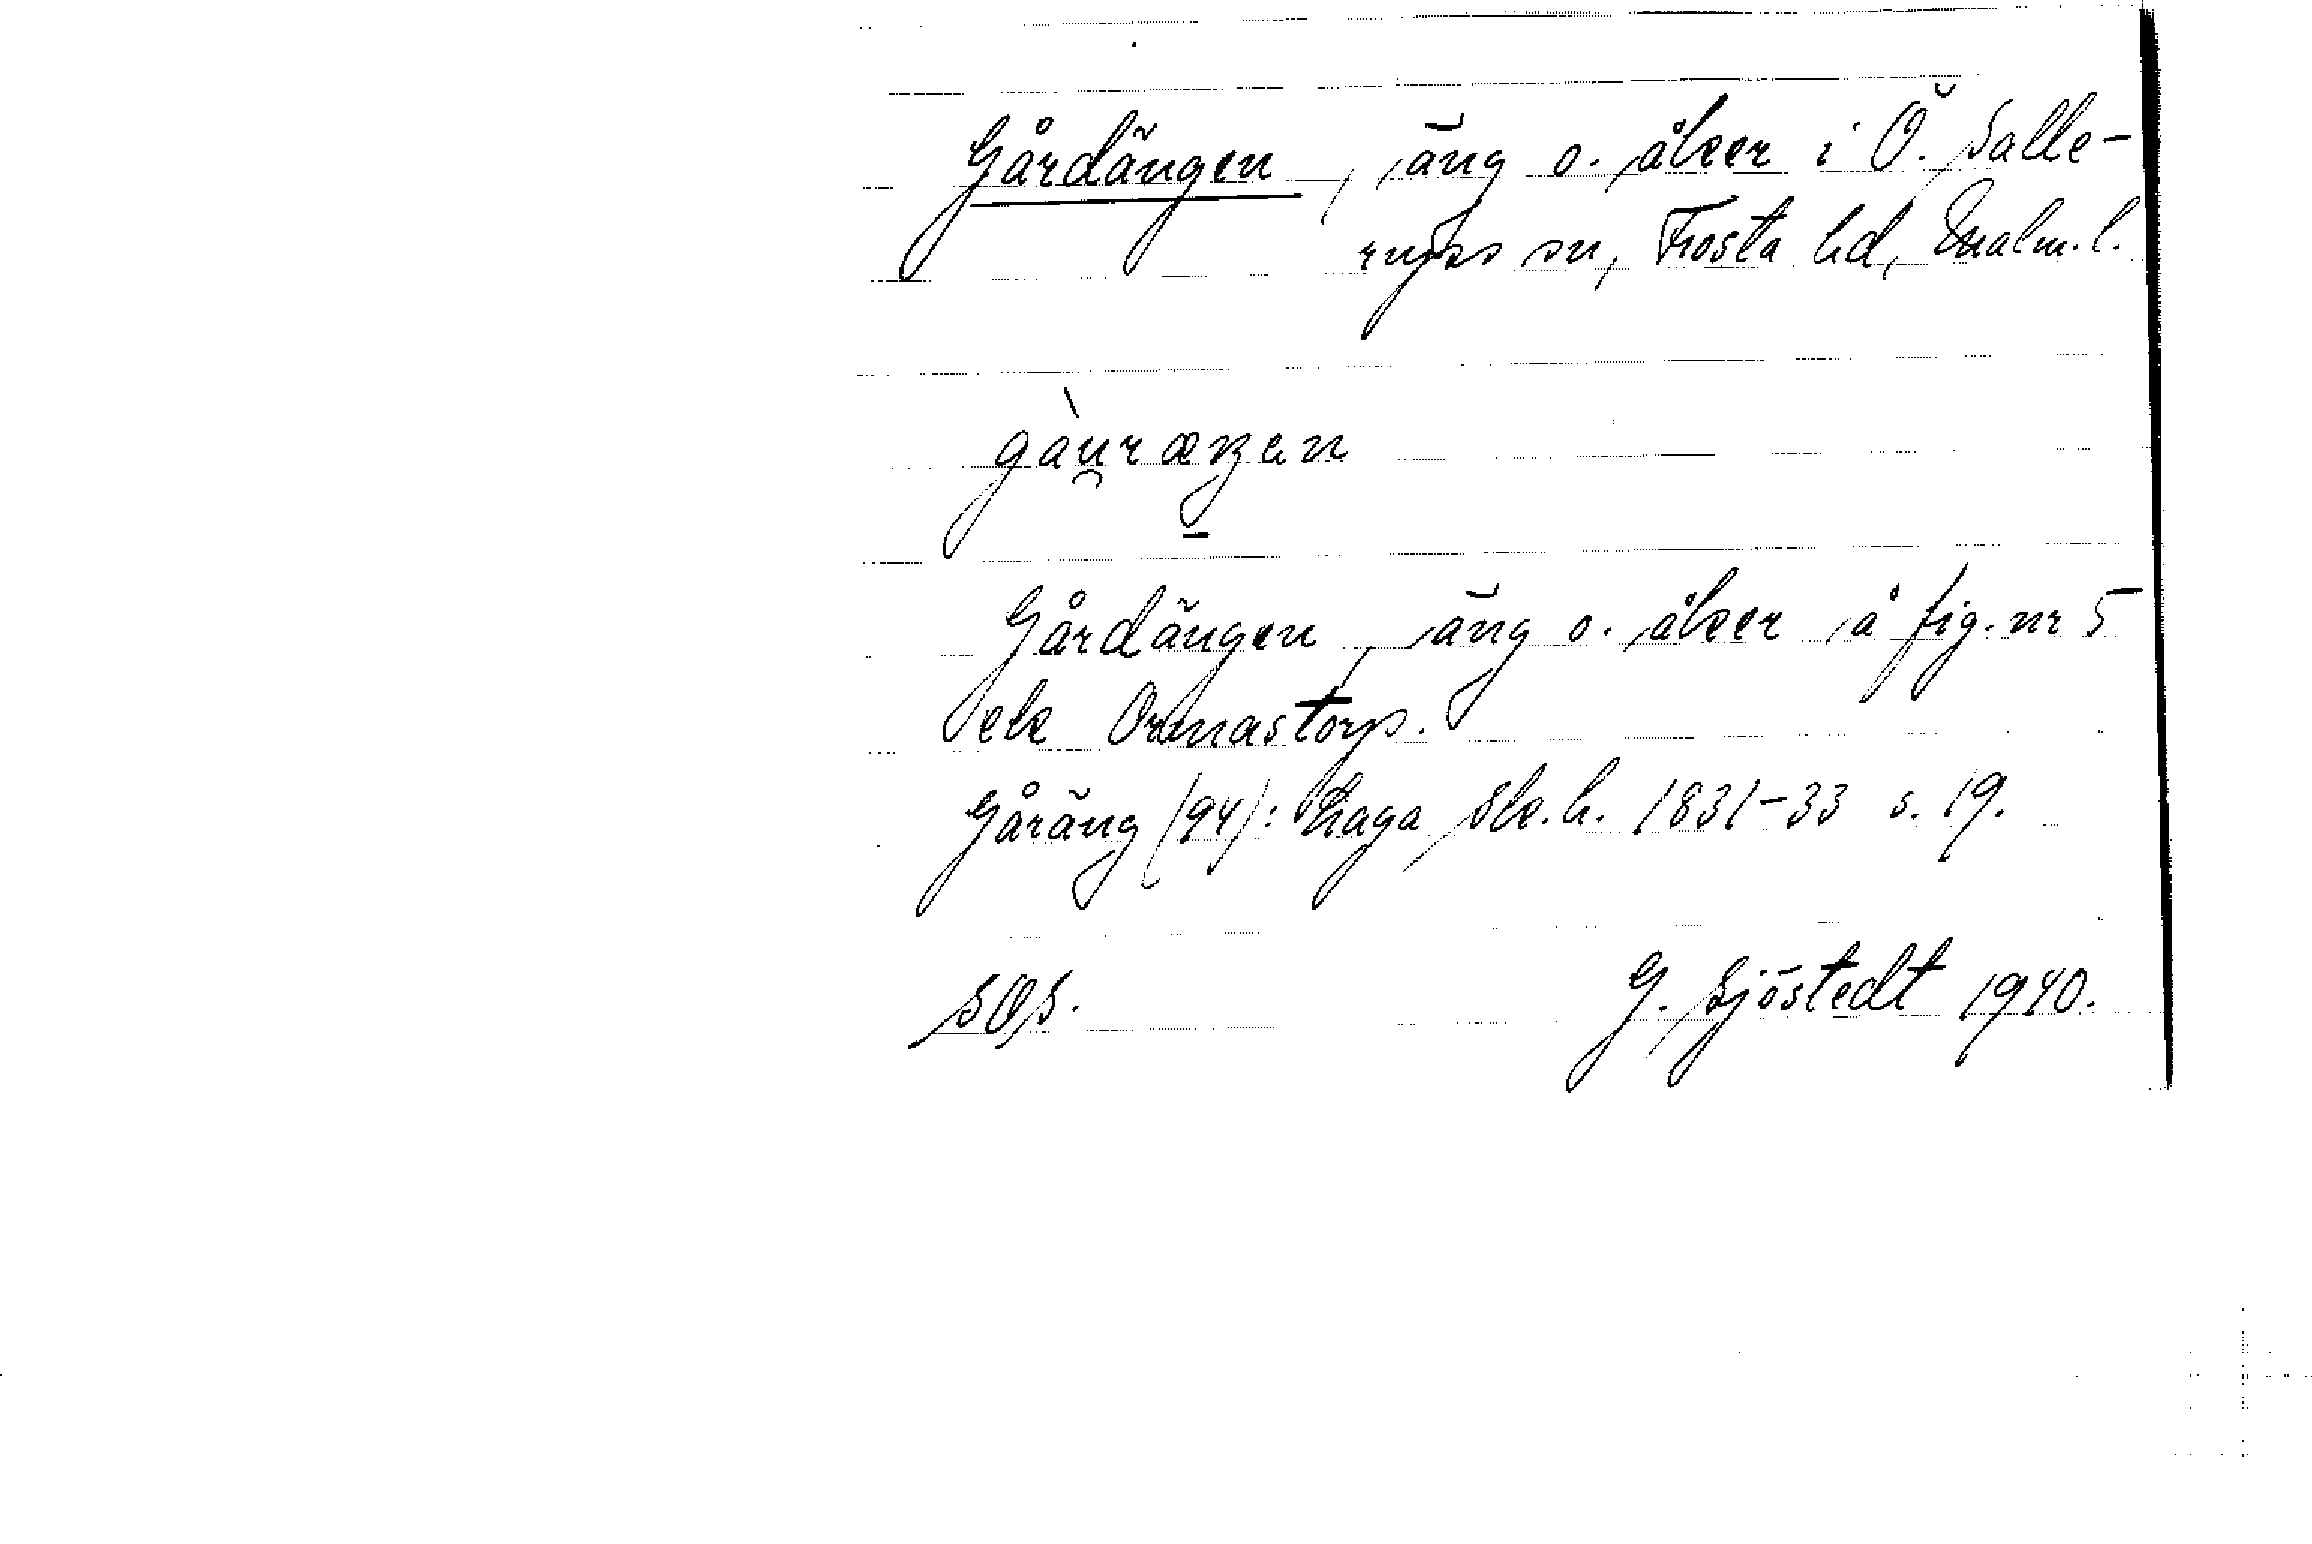 Gårdängen, äng o. åker i Ö. Salle-
rups sn, Frosta hd, Malm. l.
gàu̯ræŋen
Gårdängen, äng o. åker å fig. nr 5
ek Ormastorp.
Gåräng (94): Laga Sk.h. 1831-33 s. 19.
SOS.
G. Sjöstedt 1940.